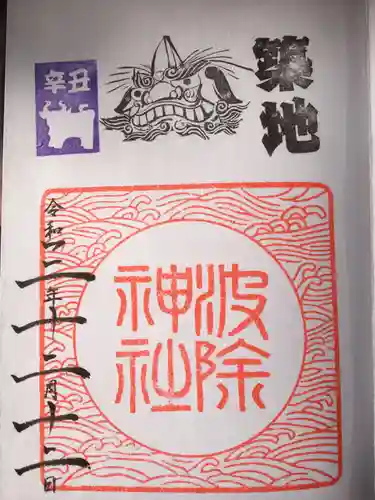 築地
辛丑
波除
神社
令和三年十二月十二日